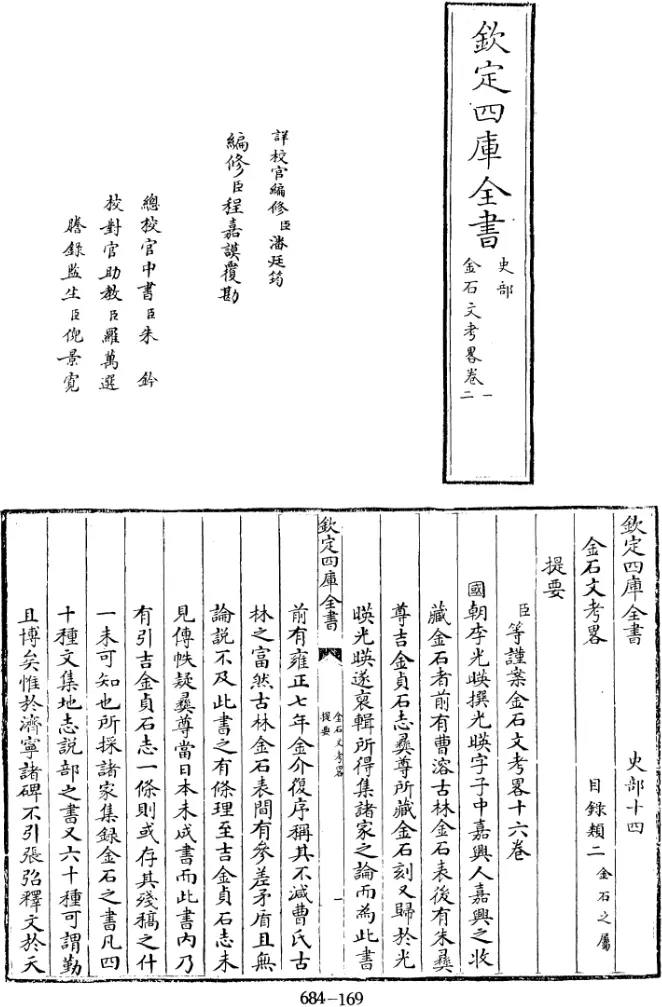 欽定四庫全書
史部
金石文考畧卷一
二
詳校官編修臣潘廷筠
編修臣程嘉謨覆勘
總校官中書臣朱鈐
校對官助教臣羅萬選
謄錄監生臣倪景寬
欽定四庫全書 史部十四
金石文考畧 目錄類二金石之屬
提要
臣等謹案金石文考畧十六卷
國朝李光暎撰光暎字子中嘉興人嘉興之收
藏金石者前有曹溶古林金石表後有朱彞
尊吉金貞石志彞尊所藏金石刻又歸於光
暎光暎遂裒輯所得集諸家之論而為此書
欽定四庫全書 金石文考畧提要 一
前有雍正七年金介復序稱其不減曹氏古
林之富然古林金石表間有參差矛盾且無
論說不及此書之有條理至吉金貞石志未
見傳帙疑彞尊當日本未成書而此書內乃
有引吉金貞石志一條則或存其殘稿之什
一未可知也所採諸家集錄金石之書凡四
十種文集地志說部之書又六十種可謂勤
且博矣惟於濟寧諸碑不引張弨釋文於天
684-169